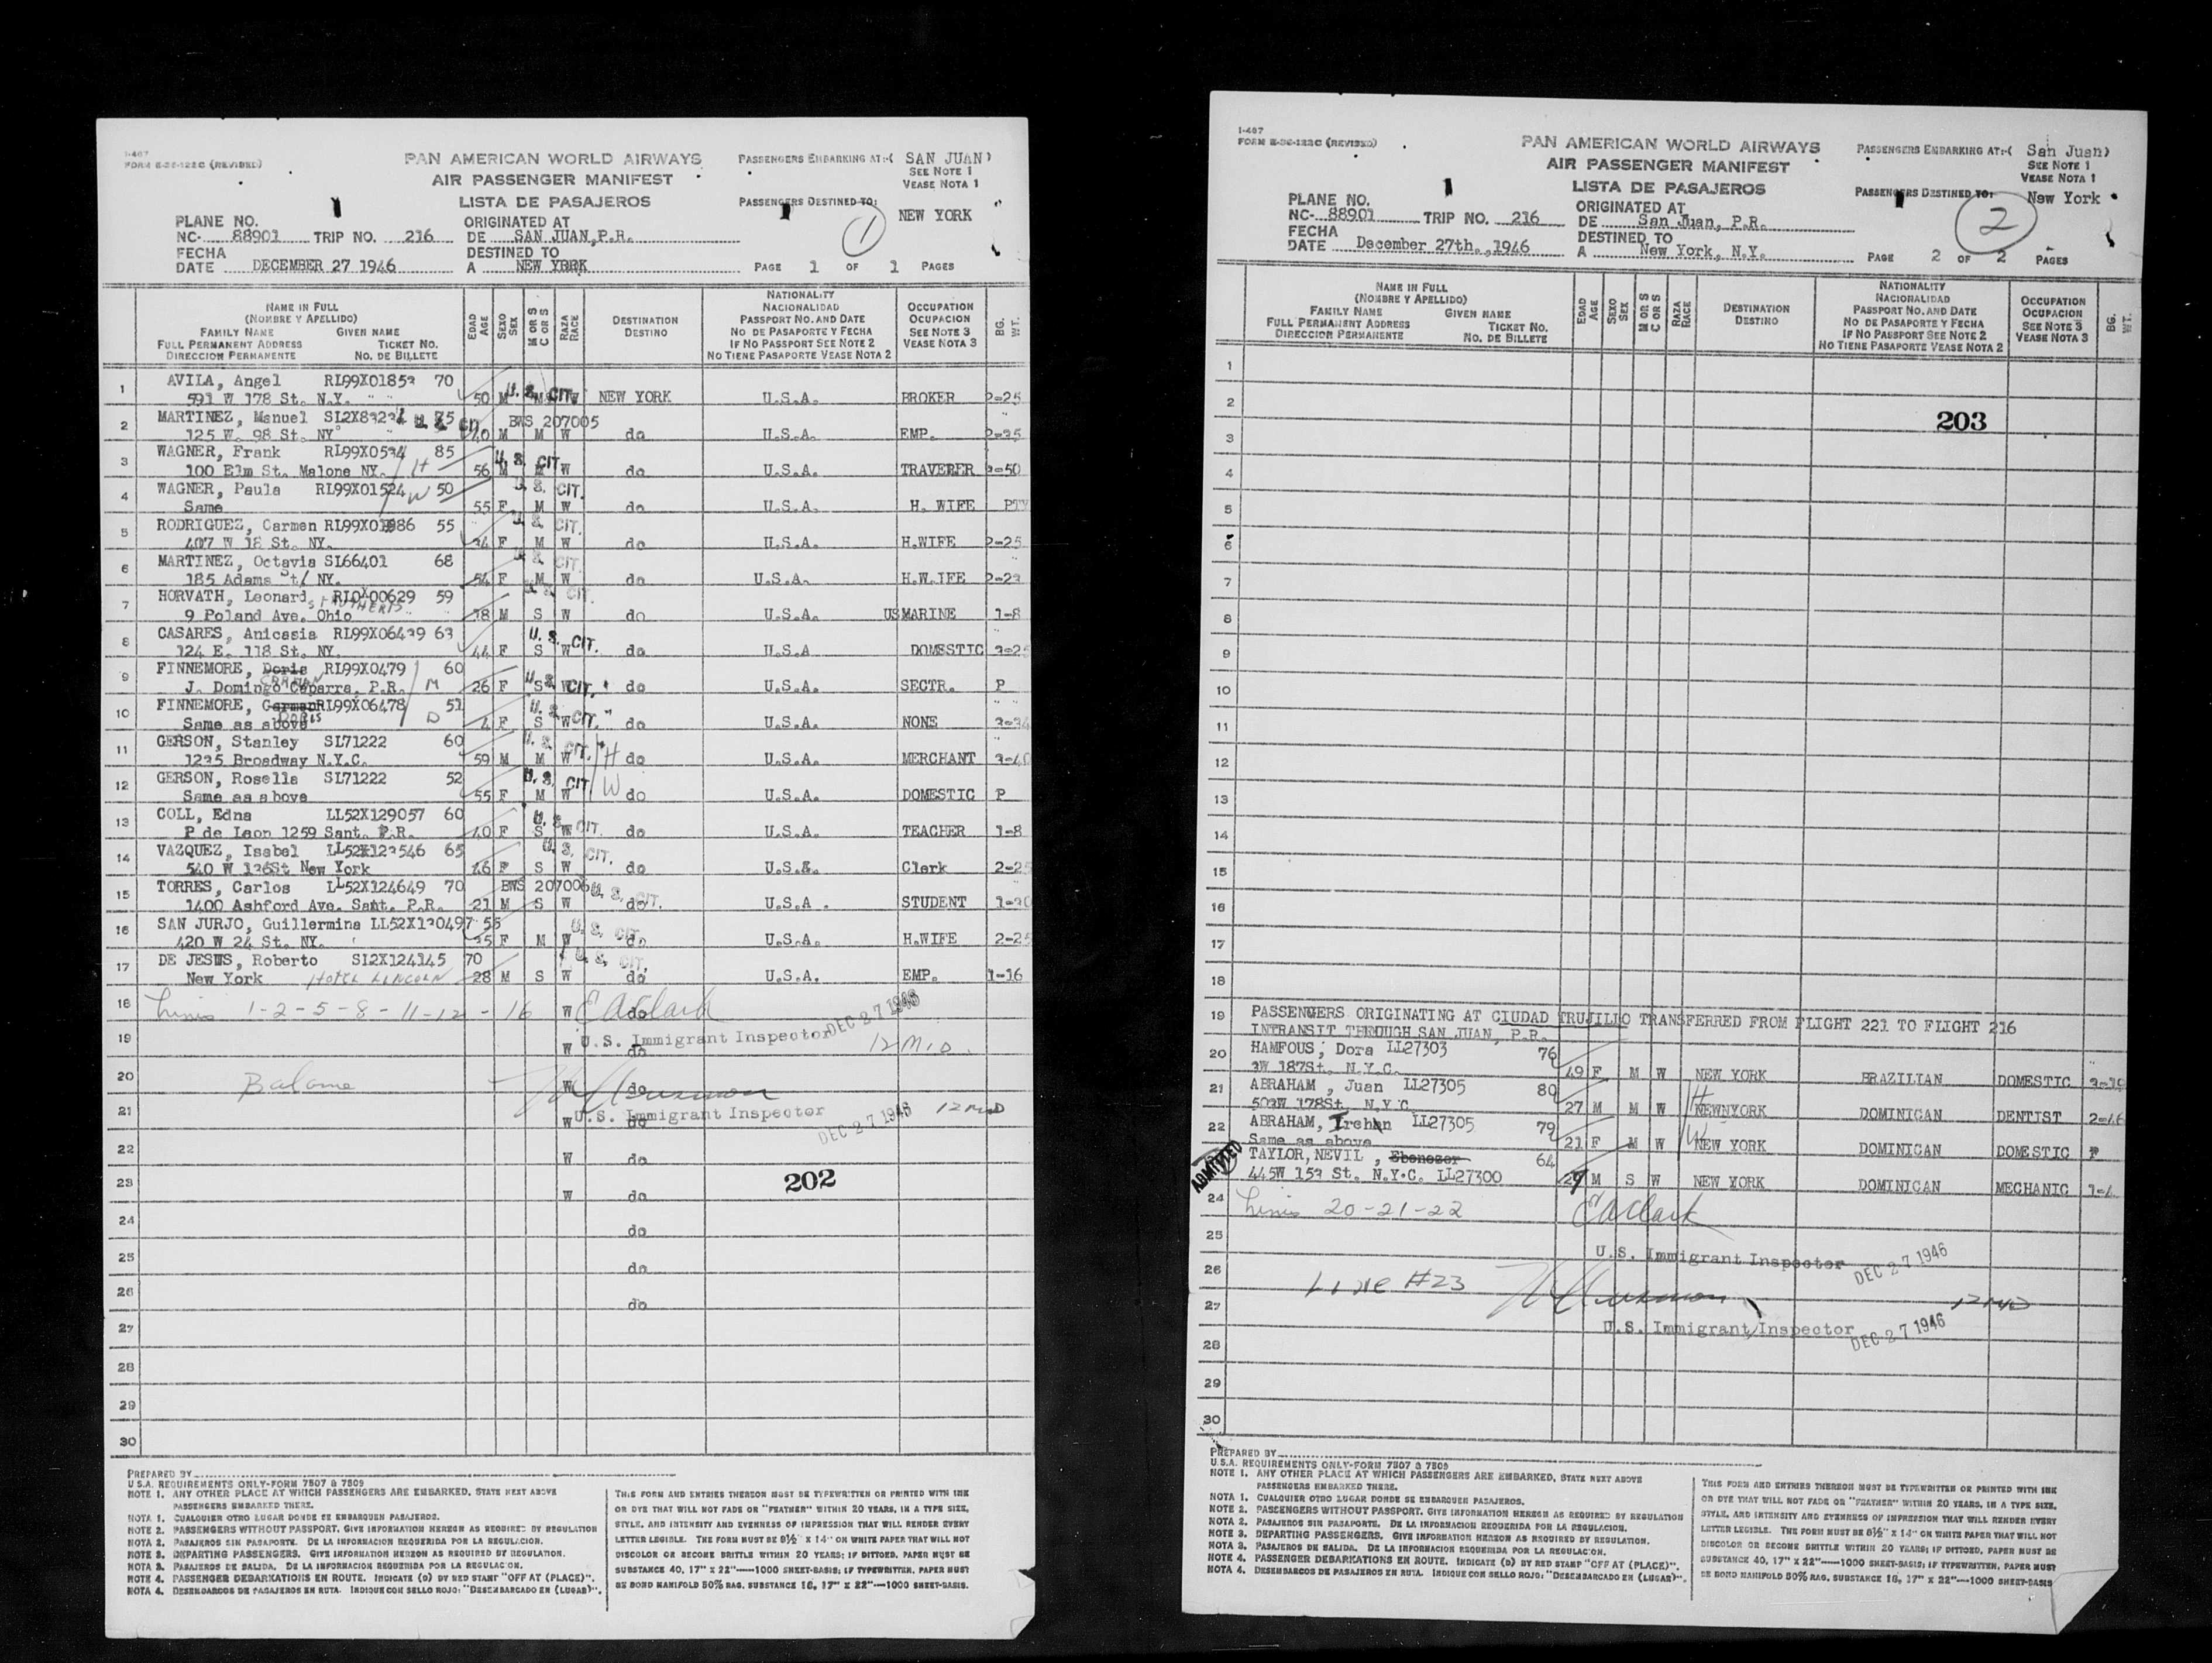 I-407
FORM E-36-122C (REVISED)
PAN AMERICAN WORLD AIRWAYS
AIR PASSENGER MANIFEST
LISTA DE PASAJEROS
PASSENGERS EMBARKING AT:-( SAN JUAN)
SEE NOTE 1
VEASE NOTA 1
PASSENGERS DESTINED TO:
NEW YORK
1
PLANE NO.
NC- 88901 TRIP NO. 216
ORIGINATED AT
DE SAN JUAN, P.R.
FECHA
DATE DECEMBER 27 1946
DESTINED TO
A NEW YBRK
PAGE 1 OF 1 PAGES
NAME IN FULL
(NOMBRE Y APELLIDO)
FAMILY NAME GIVEN NAME
FULL PERMANENT ADDRESS TICKET NO.
DIRECCION PERMANENTE NO. DE BILLETE
EDAD AGE
SEXO SEX
M OR S C OR S
RAZA RACE
DESTINATION DESTINO
NATIONALITY
NACIONALIDAD
PASSPORT NO. AND DATE
NO DE PASAPORTE Y FECHA
IF NO PASSPORT SEE NOTE 2
NO TIENE PASAPORTE VEASE NOTA 2
OCCUPATION
OCUPACION
SEE NOTE 3
VEASE NOTA 3
BG. WT.
1 AVILA, Angel 70
591 W 178 St. N.Y. 50 M M W U. S. CIT. NEW YORK U.S.A. BROKER 2-25
2 MARTINEZ, Manuel BWS 207005
125 W. 98 St. NY 40 M M W do U.S.A. EMP.
3 WAGNER, Frank RL99X0534 85 U. S. CIT.
100 Elm St. Malone NY. H 56 M M W do U.S.A. TRAVERER
4 WAGNER, Paula RL99X01524 W 50 U. S. CIT.
Same 55 F M W do U.S.A. H. WIFE
5 RODRIGUEZ, Carmen 55 U. S. CIT.
407 W 18 St. NY. 34 F M W do U.S.A. H.WIFE 2-25
6 MARTINEZ, Octavia SL66401 68 U. S. CIT.
185 Adams St/ NY. 54 F M W do U.S.A. H.W.IFE
7 HORVATH, Leonard RL0X00629 59 U. S. CIT.
9 Poland Ave. STRUTHERS Ohio 18 M S W do U.S.A. US MARINE 1-8
8 CASARES, Anicasia RL99X06439 63 U. S. CIT.
124 E. 118 St. NY. 44 F S W do U.S.A DOMESTIC
9 FINNEMORE, Doris RL99X0479 60 U. S. CIT.
CARMEN
J. Domingo Caparra, P.R. M 26 F S W do U.S.A. SECTR. P
10 FINNEMORE, Carmen RL99X06478 51 U. S. CIT.
DORIS
Same as above D 4 F S W do U.S.A. NONE
11 GERSON, Stanley SL71222 60 U. S. CIT.
1235 Broadway N.Y.C. 59 M M W H do U.S.A. MERCHANT
12 GERSON, Rosella SL71222 52 U. S. CIT
Same as above 55 F M W W do U.S.A. DOMESTIC P
13 COLL, Edna LL52X129057 60 U. S. CIT.
P de Leon 1259 Sant. P.R. 40 F S W do U.S.A. TEACHER 1-8
14 VAZQUEZ, Isabel LL52X123546 65 U. S. CIT.
540 W 136St New York F S W Clerk
15 TORRES, Carlos LL52X124649 70 BWS 207006 U. S. CIT.
1400 Ashford Ave. Sant. P.R. 21 M S W do U.S.A. STUDENT
16 SAN JURJO, Guillermina LL52X130497 55 U. S. CIT.
420 W 24 St. NY. 35 F M W do U.S.A. H.WIFE 2-25
17 DE JESUS, Roberto SL2X124145 70 U. S. CIT.
New York HOTEL LINCOLN 28 M S W do U.S.A. EMP. 1-16
18 Lines 1-2-5-8-11-12-16 W do EA Clark
DEC 27 1946
19 W do U.S. Immigrant Inspector 12 MID.
20 Balance W do
21 W do U.S. Immigrant Inspector 12 MID
DEC 27 1946
22 W do
23 W do 202
24 do
25 do
26 do
27
28
29
30
PREPARED BY
U.S.A. REQUIREMENTS ONLY-FORM 7507 & 7509
NOTE 1. ANY OTHER PLACE AT WHICH PASSENGERS ARE EMBARKED, STATE NEXT ABOVE
PASSENGERS EMBARKED THERE.
NOTA 1. CUALQUIER OTRO LUGAR DONDE SE EMBARQUEN PASAJEROS.
NOTE 2. PASSENGERS WITHOUT PASSPORT. GIVE INFORMATION HEREON AS REQUIRED BY REGULATION
NOTA 2. PASAJEROS SIN PASAPORTE. DE LA INFORMACION REQUERIDA POR LA REGULACION.
NOTE 3. DEPARTING PASSENGERS. GIVE INFORMATION HEREON AS REQUIRED BY REGULATION.
NOTA 3. PASAJEROS DE SALIDA. DE LA INFORMACION REQUERIDA POR LA REGULACION.
NOTE 4. PASSENGER DEBARKATIONS EN ROUTE. INDICATE (D) BY RED STAMP "OFF AT (PLACE)".
NOTA 4. DESEMBARCOS DE PASAJEROS EN RUTA. INDIQUE CON SELLO ROJO: "DESEMBARCADO EN (LUGAR)".
THIS FORM AND ENTRIES THEREON MUST BE TYPEWRITTEN OR PRINTED WITH INK
OR DYE THAT WILL NOT FADE OR "FEATHER" WITHIN 20 YEARS, IN A TYPE SIZE,
STYLE, AND INTENSITY AND EVENNESS OF IMPRESSION THAT WILL RENDER EVERY
LETTER LEGIBLE. THE FORM MUST BE 8½" X 14" ON WHITE PAPER THAT WILL NOT
DISCOLOR OR BECOME BRITTLE WITHIN 20 YEARS; IF DITTOED, PAPER MUST BE
SUBSTANCE 40, 17" X 22"-----1000 SHEET-BASIS; IF TYPEWRITTEN, PAPER MUST
BE BOND MANIFOLD 50% RAG, SUBSTANCE 16, 17" X 22"---1000 SHEET-BASIS.
I-407
FORM E-36-122C (REVISED)
PAN AMERICAN WORLD AIRWAYS
AIR PASSENGER MANIFEST
LISTA DE PASAJEROS
PASSENGERS EMBARKING AT:-( San Juan)
SEE NOTE 1
VEASE NOTA 1
PASSENGERS DESTINED TO:
New York
2
PLANE NO.
NC- 88901 TRIP NO. 216
ORIGINATED AT
DE San Juan, P.R.
FECHA
DATE December 27th., 1946
DESTINED TO
A New York, N.Y.
PAGE 2 OF 2 PAGES
NAME IN FULL
(NOMBRE Y APELLIDO)
FAMILY NAME GIVEN NAME
FULL PERMANENT ADDRESS TICKET NO.
DIRECCION PERMANENTE NO. DE BILLETE
EDAD AGE
SEXO SEX
M OR S C OR S
RAZA RACE
DESTINATION DESTINO
NATIONALITY
NACIONALIDAD
PASSPORT NO. AND DATE
NO DE PASAPORTE Y FECHA
IF NO PASSPORT SEE NOTE 2
NO TIENE PASAPORTE VEASE NOTA 2
OCCUPATION
OCUPACION
SEE NOTE 3
VEASE NOTA 3
BG. WT.
1
2
203
3
4
5
6
7
8
9
10
11
12
13
14
15
16
17
18
19 PASSENGERS ORIGINATING AT CIUDAD TRUJILLO TRANSFERRED FROM FLIGHT 221 TO FLIGHT 216
INTRANSIT THROUGH SAN JUAN, P.R.
20 HAMFOUS, Dora LL27303 76
3W 187St. N.Y.C. 49 F M W NEW YORK BRAZILIAN DOMESTIC
21 ABRAHAM, Juan LL27305 80
503W 178St. N.Y.C. 27 M M W H NEWNYORK DOMINICAN DENTIST
22 ABRAHAM, Irehan LL27305 79
Same as above 21 F M W W NEW YORK DOMINICAN DOMESTIC P
ADMITTED TAYLOR, NEVIL, Ebenezer 64
445W 153 St. N.Y.C. LL27300 29 M S W NEW YORK DOMINICAN MECHANIC
24 Lines 20-21-22 EA Clark
25 U.S. Immigrant Inspector DEC 27 1946
26 Line #23
27 12 MID
U.S. Immigrant Inspector DEC 27 1946
28
29
30
PREPARED BY
U.S.A. REQUIREMENTS ONLY-FORM 7507 & 7509
NOTE 1. ANY OTHER PLACE AT WHICH PASSENGERS ARE EMBARKED, STATE NEXT ABOVE
PASSENGERS EMBARKED THERE.
NOTA 1. CUALQUIER OTRO LUGAR DONDE SE EMBARQUEN PASAJEROS.
NOTE 2. PASSENGERS WITHOUT PASSPORT. GIVE INFORMATION HEREON AS REQUIRED BY REGULATION
NOTA 2. PASAJEROS SIN PASAPORTE. DE LA INFORMACION REQUERIDA POR LA REGULACION.
NOTE 3. DEPARTING PASSENGERS. GIVE INFORMATION HEREON AS REQUIRED BY REGULATION.
NOTA 3. PASAJEROS DE SALIDA. DE LA INFORMACION REQUERIDA POR LA REGULACION.
NOTE 4. PASSENGER DEBARKATIONS EN ROUTE. INDICATE (D) BY RED STAMP "OFF AT (PLACE)".
NOTA 4. DESEMBARCOS DE PASAJEROS EN RUTA. INDIQUE CON SELLO ROJO: "DESEMBARCADO EN (LUGAR)".
THIS FORM AND ENTRIES THEREON MUST BE TYPEWRITTEN OR PRINTED WITH INK
OR DYE THAT WILL NOT FADE OR "FEATHER" WITHIN 20 YEARS, IN A TYPE SIZE,
STYLE, AND INTENSITY AND EVENNESS OF IMPRESSION THAT WILL RENDER EVERY
LETTER LEGIBLE. THE FORM MUST BE 8½" X 14" ON WHITE PAPER THAT WILL NOT
DISCOLOR OR BECOME BRITTLE WITHIN 20 YEARS; IF DITTOED, PAPER MUST BE
SUBSTANCE 40, 17" X 22"-----1000 SHEET-BASIS; IF TYPEWRITTEN, PAPER MUST
BE BOND MANIFOLD 50% RAG, SUBSTANCE 16, 17" X 22"---1000 SHEET-BASIS